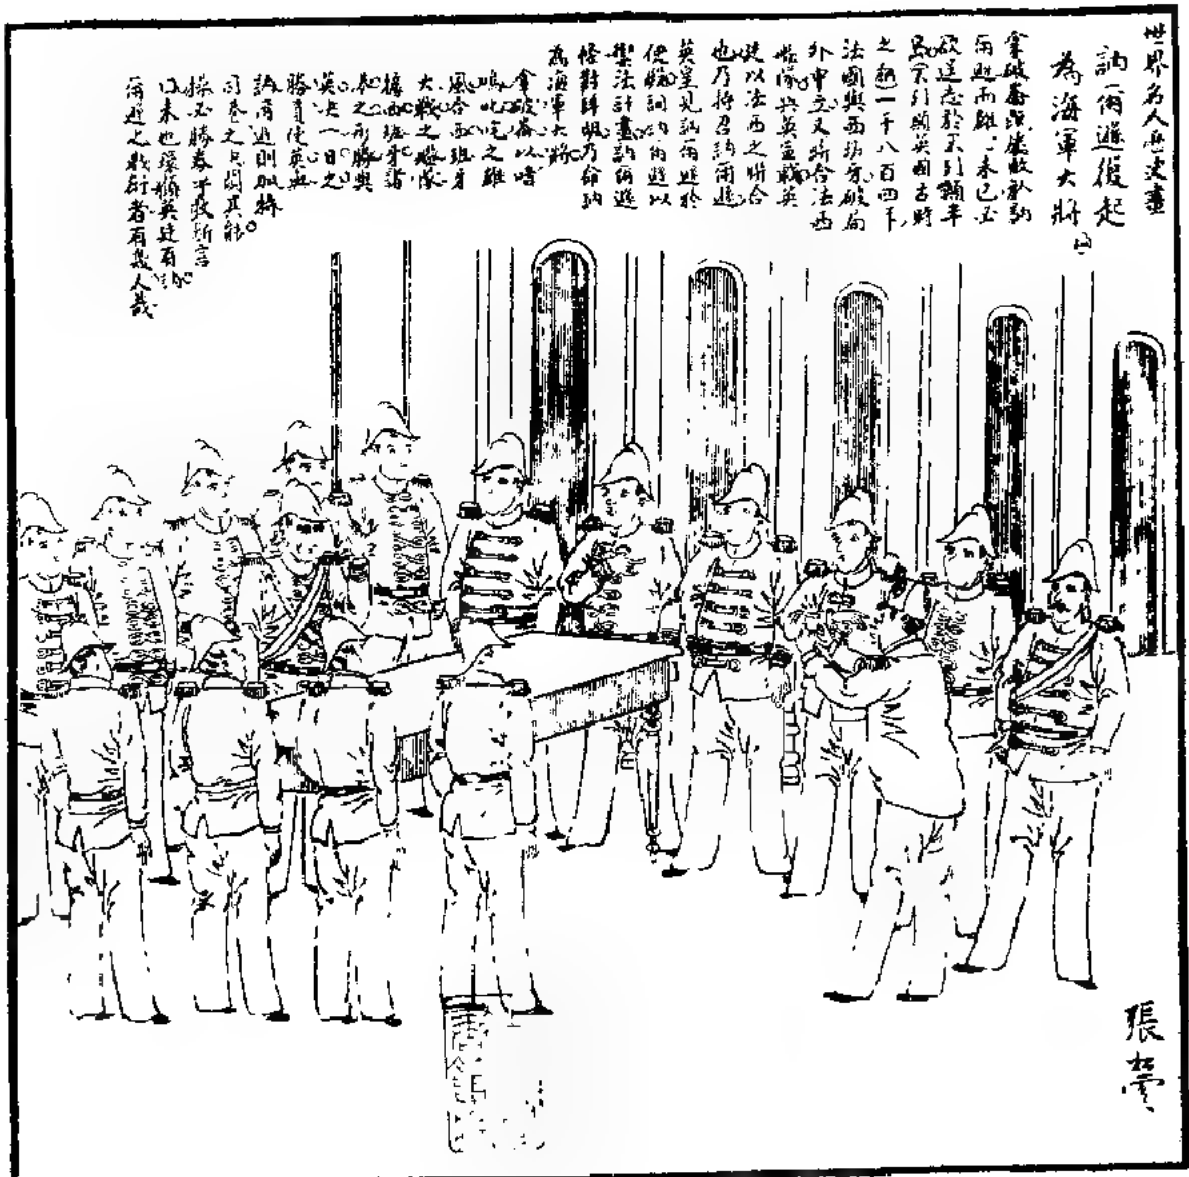 世界名人歷史畫
訥爾遜復起
為海軍大將
拿破崙既屢敗於訥
爾遜而雄心未已必
欲逞志於不列顛半
島不列顛英國古時
之名一千八百四年
法國與西班牙破局
外中立又聯合法西
艦隊與英宣戰英
廷以法西之聯合
也乃特召訥爾遜
英皇見訥爾遜於
便殿詢訥爾遜以
禦法計畫訥爾遜
怪對歸朝乃命訥
為海軍大將
拿破崙以喑
嗚叱咤之雄
風合西班牙
大戰之艦隊
據西班牙諸
港之形勝與
英決一日之
勝負使英無
訥爾遜則服特
司卷之
操必勝券乎敢斷言
其未也環顧英廷有訥
爾遜之戰術者有幾人哉
張松雲